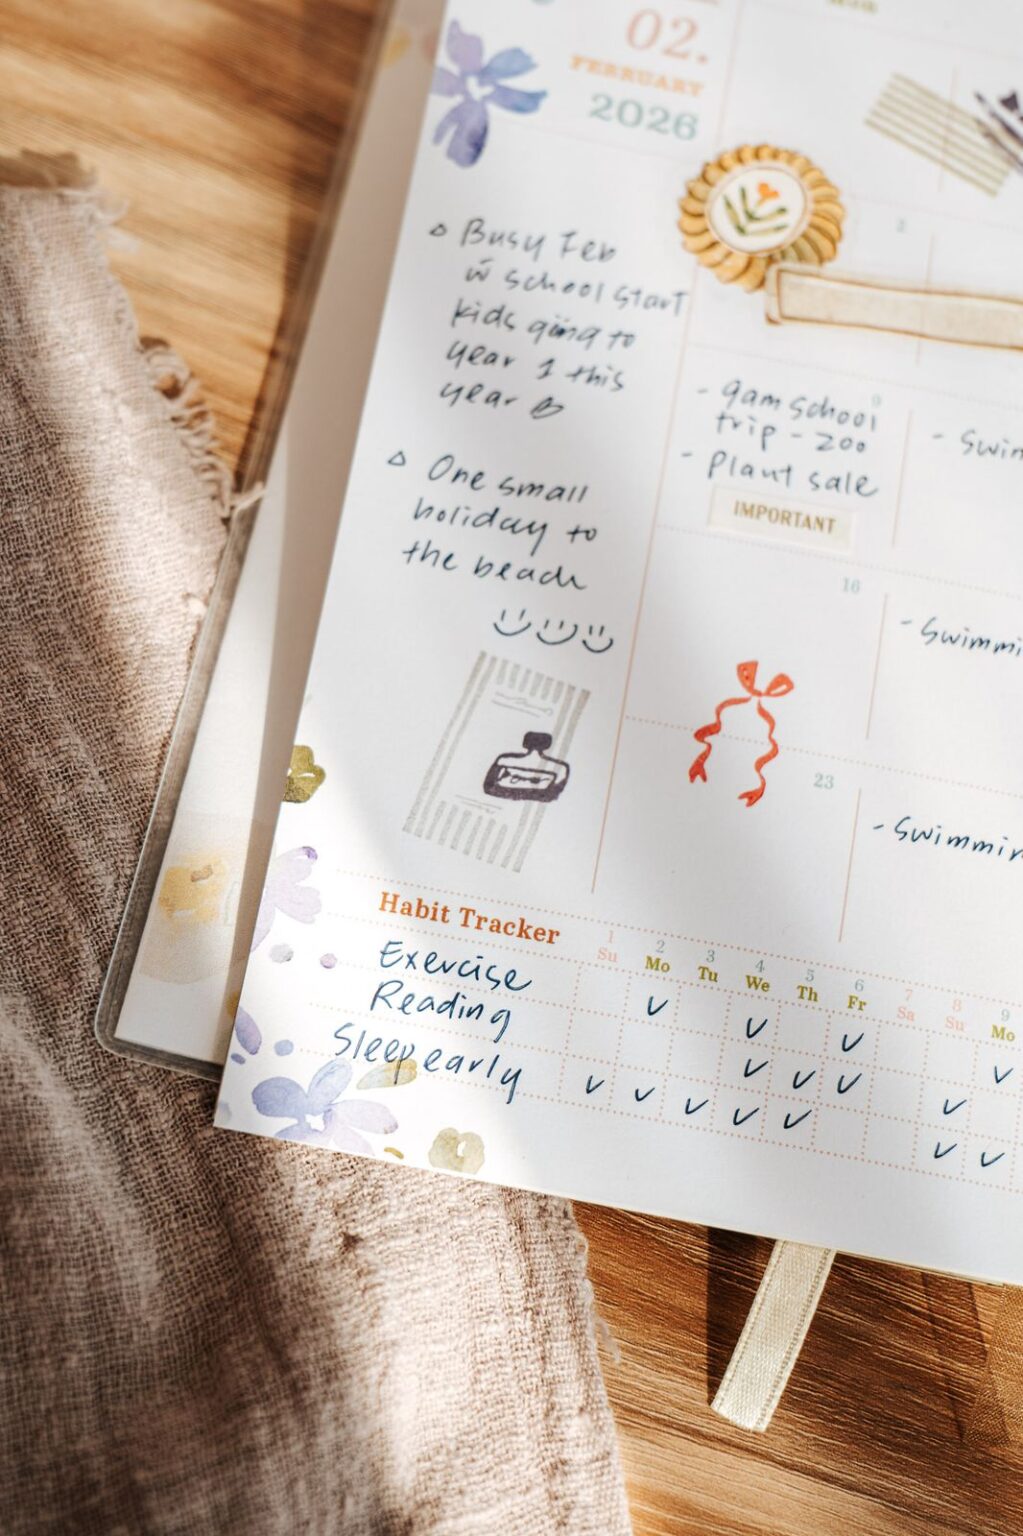 02.
FEBRUARY
2026
Busy Feb
w school start
kids going to
year 1 this
year
One small
holiday to
the beach
2
9
- 9am school
trip - zoo
- Plant sale
IMPORTANT
- Swim
16
- Swimmi
23
- Swimmin
Habit Tracker
1 2 3 4 5 6 7 8 9
Su Mo Tu We Th Fr Sa Su Mo
Exercise
Reading
Sleep early